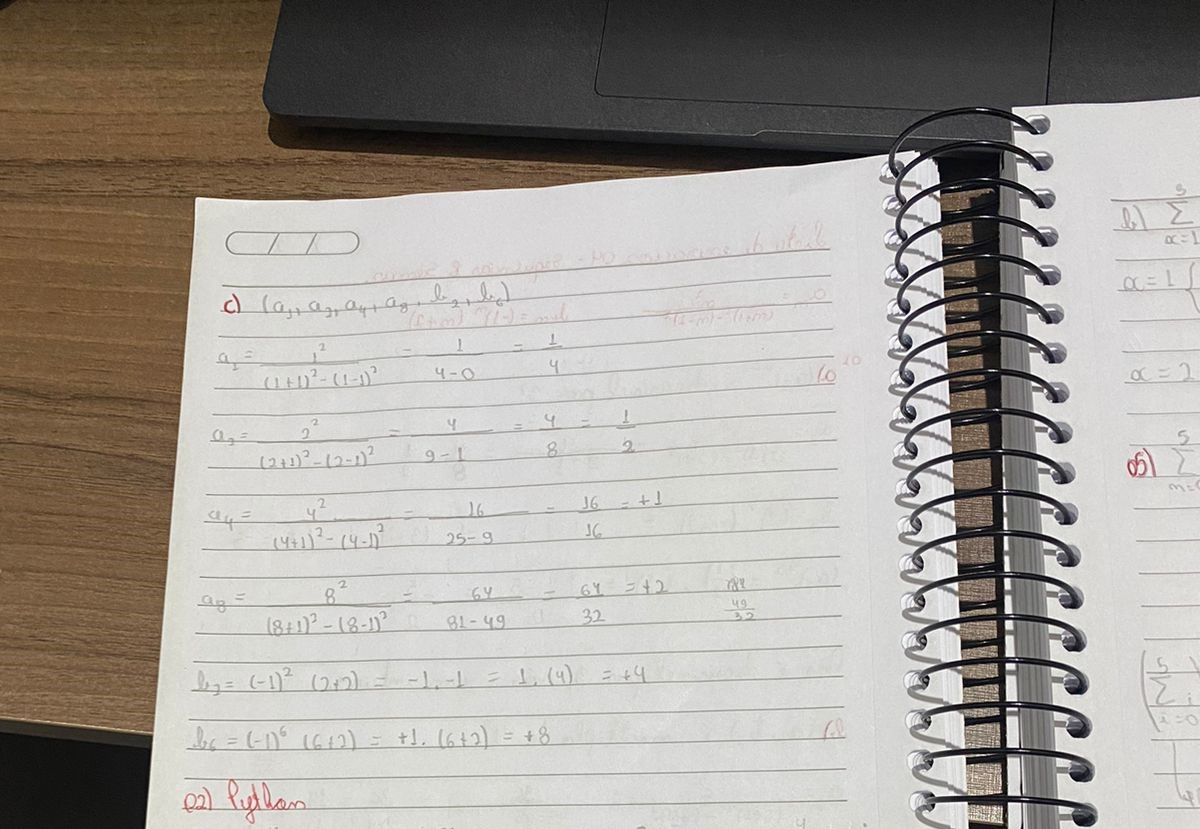 c) (a₁, a₂, a₄, a₈, b₂, b₆)
a₁ = 1² / ((1+1)²-(1-1)²) = 1 / (4-0) = 1/4
a₂ = 2² / ((2+1)²-(2-1)²) = 4 / (9-1) = 4/8 = 1/2
a₄ = 4² / ((4+1)²-(4-1)²) = 16 / (25-9) = 16/16 = +1
a₈ = 8² / ((8+1)²-(8-1)²) = 64 / (81-49) = 64/32 = +2
49
32
b₂ = (-1)² (2+2) = -1.-1 = 1.(4) = +4
b₆ = (-1)⁶ (6+2) = +1.(6+2) = +8
02) Python
b) 5 Σ x=1
x = 1 {
x = 2
05) 5 Σ
( 5 Σ i=0